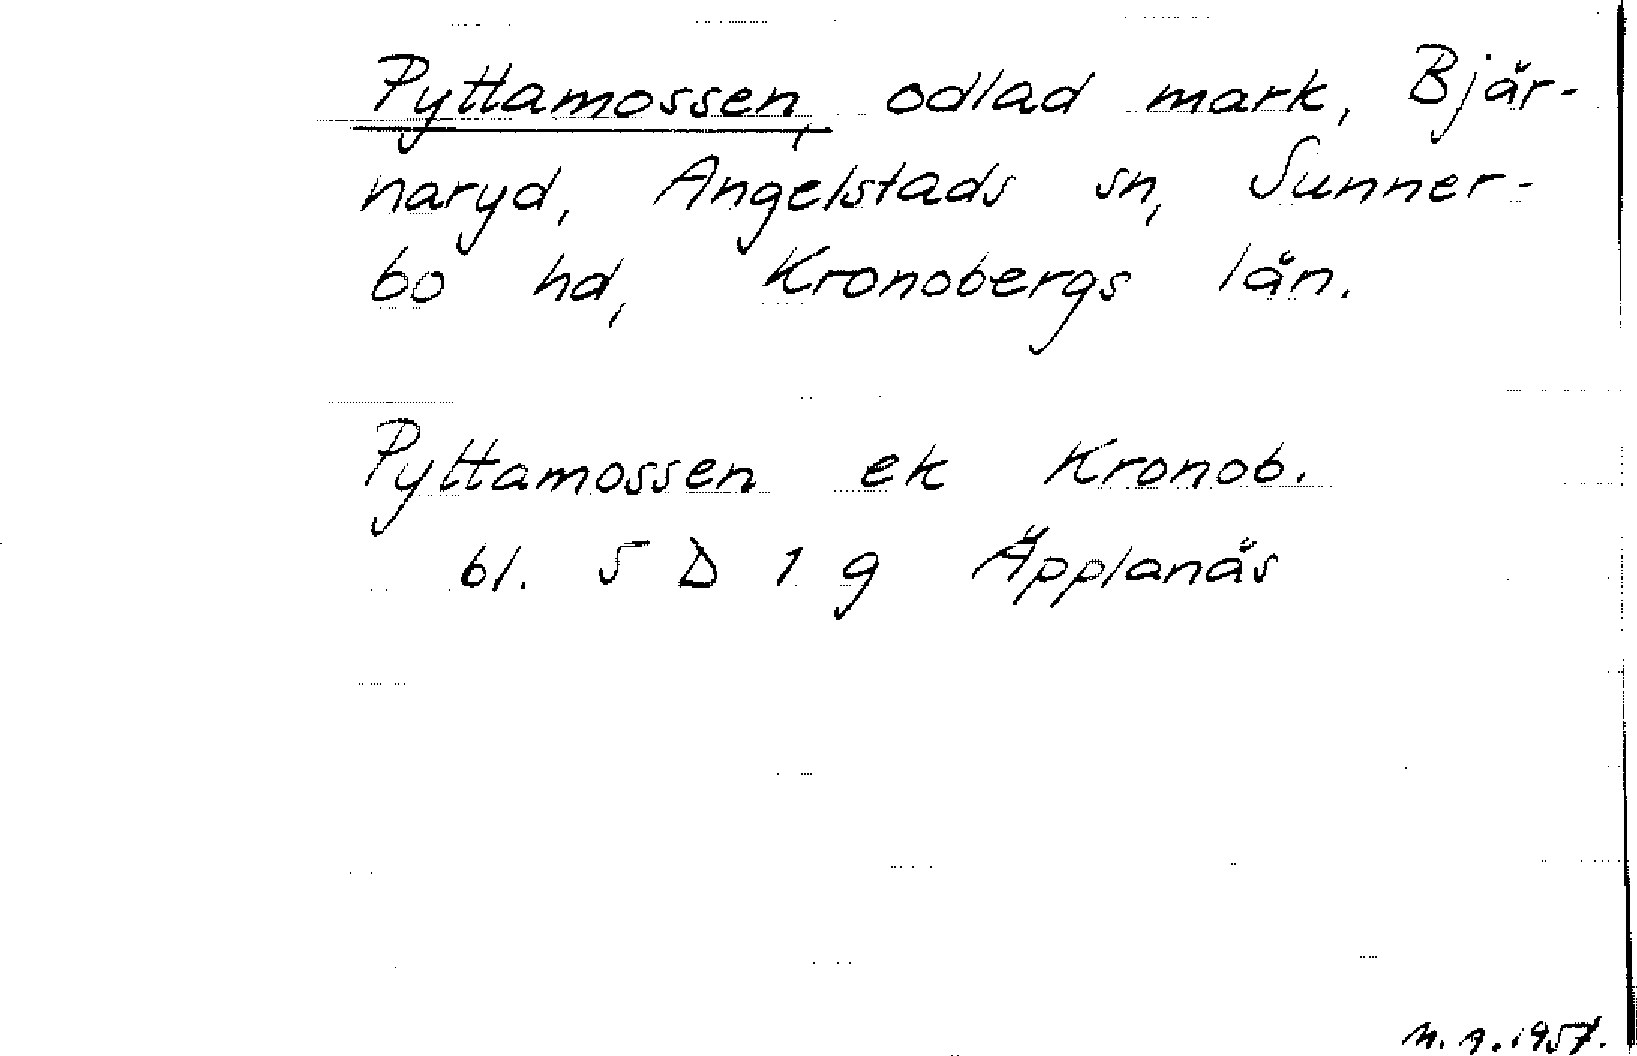 Pyttamossen, odlad mark, Bjär-
naryd, Angelstads sn, Sunner-
bo hd, Kronobergs län.
Pyttamossen ek Kronob.
bl. 5 D 1 g Äpplanäs
1957.